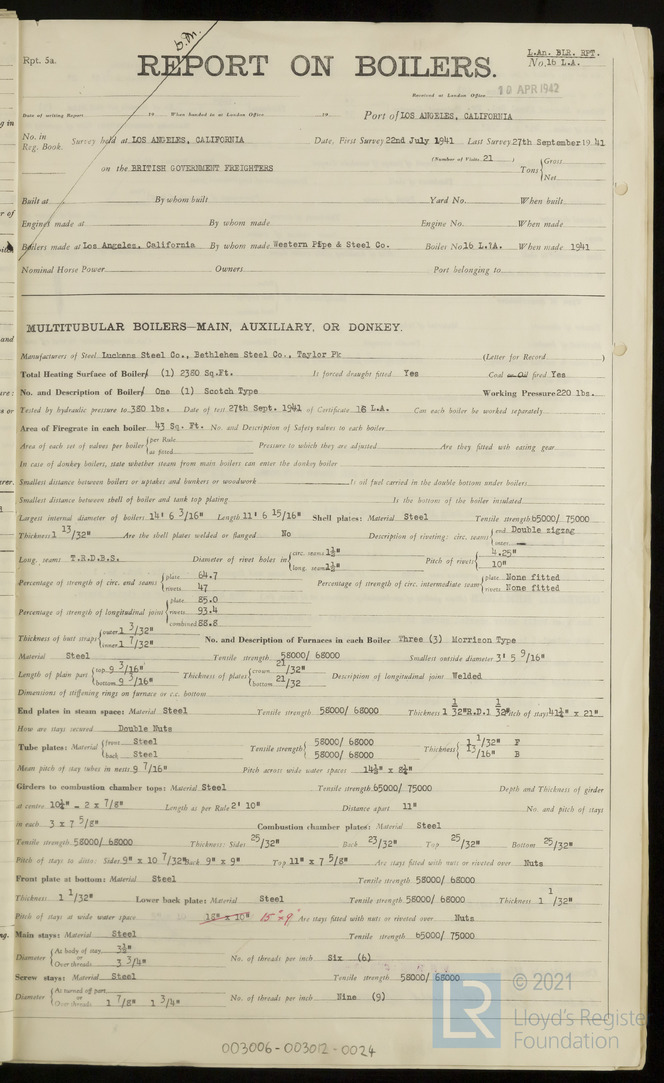 b.m.
Rpt. 5a.
L.An. BLR. RPT.
No. 16 L.A.
REPORT ON BOILERS.
Received at London Office 10 APR 1942
Date of writing Report 19 When handed in at London Office 19 Port of LOS ANGELES, CALIFORNIA
No. in Reg. Book. Survey held at LOS ANGELES, CALIFORNIA Date. First Survey 22nd July 1941 Last Survey 27th September 19 41
(Number of Visits 21 )
on the BRITISH GOVERNMENT FREIGHTERS Tons { Gross Net
Built at By whom built Yard No. When built
Engines made at By whom made Engine No. When made
Boilers made at Los Angeles, California By whom made Western Pipe & Steel Co. Boiler No 16 L.A. When made 1941
Nominal Horse Power Owners Port belonging to
MULTITUBULAR BOILERS—MAIN, AUXILIARY, OR DONKEY.
Manufacturers of Steel Luckens Steel Co., Bethlehem Steel Co., Taylor Pk (Letter for Record )
Total Heating Surface of Boiler/ (1) 2380 Sq.Ft. Is forced draught fitted Yes Coal or Oil fired Yes
No. and Description of Boiler/ One (1) Scotch Type Working Pressure 220 lbs.
Tested by hydraulic pressure to 380 lbs. Date of test 27th Sept. 1941 of Certificate 16 L.A. Can each boiler be worked separately
Area of Firegrate in each boiler 43 Sq. Ft. No. and Description of Safety valves to each boiler
Area of each set of valves per boiler { per Rule as fitted Pressure to which they are adjusted Are they fitted with easing gear
In case of donkey boilers, state whether steam from main boilers can enter the donkey boiler
Smallest distance between boilers or uptakes and bunkers or woodwork Is oil fuel carried in the double bottom under boilers
Smallest distance between shell of boiler and tank top plating Is the bottom of the boiler insulated
Largest internal diameter of boilers 14' 6 3/16" Length 11' 6 15/16" Shell plates: Material Steel Tensile strength 65000/ 75000
Thickness 1 13/32" Are the shell plates welded or flanged No Description of riveting: circ. seams { end Double zigzag inter. —
Long. seams T.R.D.B.S. Diameter of rivet holes in { circ. seams 1½" long. seams 1½" Pitch of rivets { 4.25" 10"
Percentage of strength of circ. end seams { plate 64.7 rivets 47 Percentage of strength of circ. intermediate seam { plate None fitted rivets None fitted
Percentage of strength of longitudinal joint { plate 85.0 rivets 93.4 combined 88.8
Thickness of butt straps { outer 1 3/32" inner 1 7/32" No. and Description of Furnaces in each Boiler Three (3) Morrison Type
Material Steel Tensile strength 58000/ 68000 Smallest outside diameter 3' 5 9/16"
Length of plain part { top 9 3/16" bottom 9 3/16" Thickness of plates { crown 21/32" bottom 21/32 Description of longitudinal joint Welded
Dimensions of stiffening rings on furnace or c.c. bottom
End plates in steam space: Material Steel Tensile strength 58000/ 68000 Thickness 1 1/32"R.D.1 1/32" Pitch of stays 41¼" x 21"
How are stays secured Double Nuts
Tube plates: Material { front Steel back Steel Tensile strength { 58000/ 68000 58000/ 68000 Thickness { 1 1/32" F 13/16" B
Mean pitch of stay tubes in nests 9 7/16" Pitch across wide water spaces 14½" x 8¼"
Girders to combustion chamber tops: Material Steel Tensile strength 65000/ 75000 Depth and Thickness of girder
at centre 10¼" – 2 x 7/8" Length as per Rule 2' 10" Distance apart 11" No. and pitch of stays
in each 3 x 7 5/8" Combustion chamber plates: Material Steel
Tensile strength 58000/ 68000 Thickness: Sides 25/32" Back 23/32" Top 25/32" Bottom 25/32"
Pitch of stays to ditto: Sides 9" x 10 7/32" Back 9" x 9" Top 11" x 7 5/8" Are stays fitted with nuts or riveted over Nuts
Front plate at bottom: Material Steel Tensile strength 58000/ 68000
Thickness 1 1/32" Lower back plate: Material Steel Tensile strength 58000/ 68000 Thickness 1 1/32"
Pitch of stays at wide water space 18" x 10" 15" x 9" Are stays fitted with nuts or riveted over Nuts
Main stays: Material Steel Tensile strength 65000/ 75000
Diameter { At body of stay, or Over threads 3½" 3 3/4" No. of threads per inch Six (6)
Screw stays: Material Steel Tensile strength 58000/ 68000
Diameter { At turned off part, or Over threads 1 7/8" 1 3/4" No. of threads per inch Nine (9)
003006-003012-0024
LR
© 2021
Lloyd's Register
Foundation